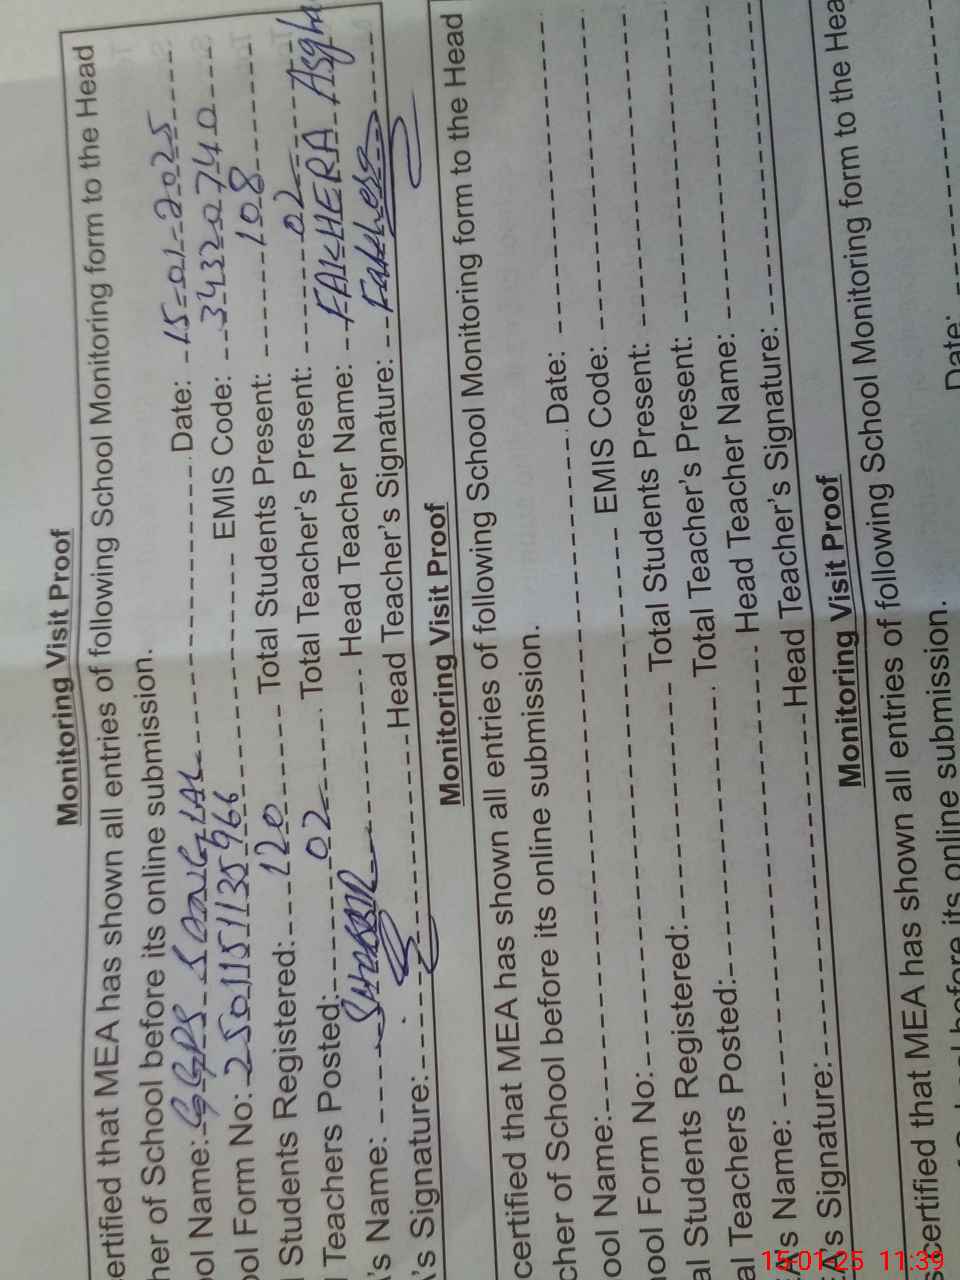 Monitoring Visit Proof
certified that MEA has shown all entries of following School Monitoring form to the Head
her of School before its online submission.
ool Name: GGPS SANGLAL Date: 15-01-2025
ool Form No: 2501151135966 EMIS Code: 34320740
l Students Registered: 120 Total Students Present: 108
l Teachers Posted: 02 Total Teacher's Present: 02
's Name: SHABBIR Head Teacher Name: FAKHERA Asgha
's Signature: Head Teacher's Signature: Fakhera
Monitoring Visit Proof
certified that MEA has shown all entries of following School Monitoring form to the Head
cher of School before its online submission.
ool Name: Date:
hool Form No: EMIS Code:
al Students Registered: Total Students Present:
al Teachers Posted: Total Teacher's Present:
EA's Name: Head Teacher Name:
EA's Signature: Head Teacher's Signature:
Monitoring Visit Proof
s certified that MEA has shown all entries of following School Monitoring form to the Hea
of School before its online submission.
Date:
15-01-25 11:39